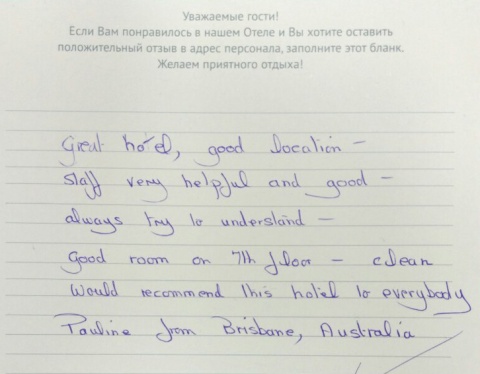 Уважаемые гости!
Если Вам понравилось в нашем Отеле и Вы хотите оставить
положительный отзыв в адрес персонала, заполните этот бланк.
Желаем приятного отдыха!
Great hotel, good location –
staff very helpful and good –
always try to understand –
Good room on 7th floor – clean
Would recommend this hotel to everybody
Pauline from Brisbane, Australia